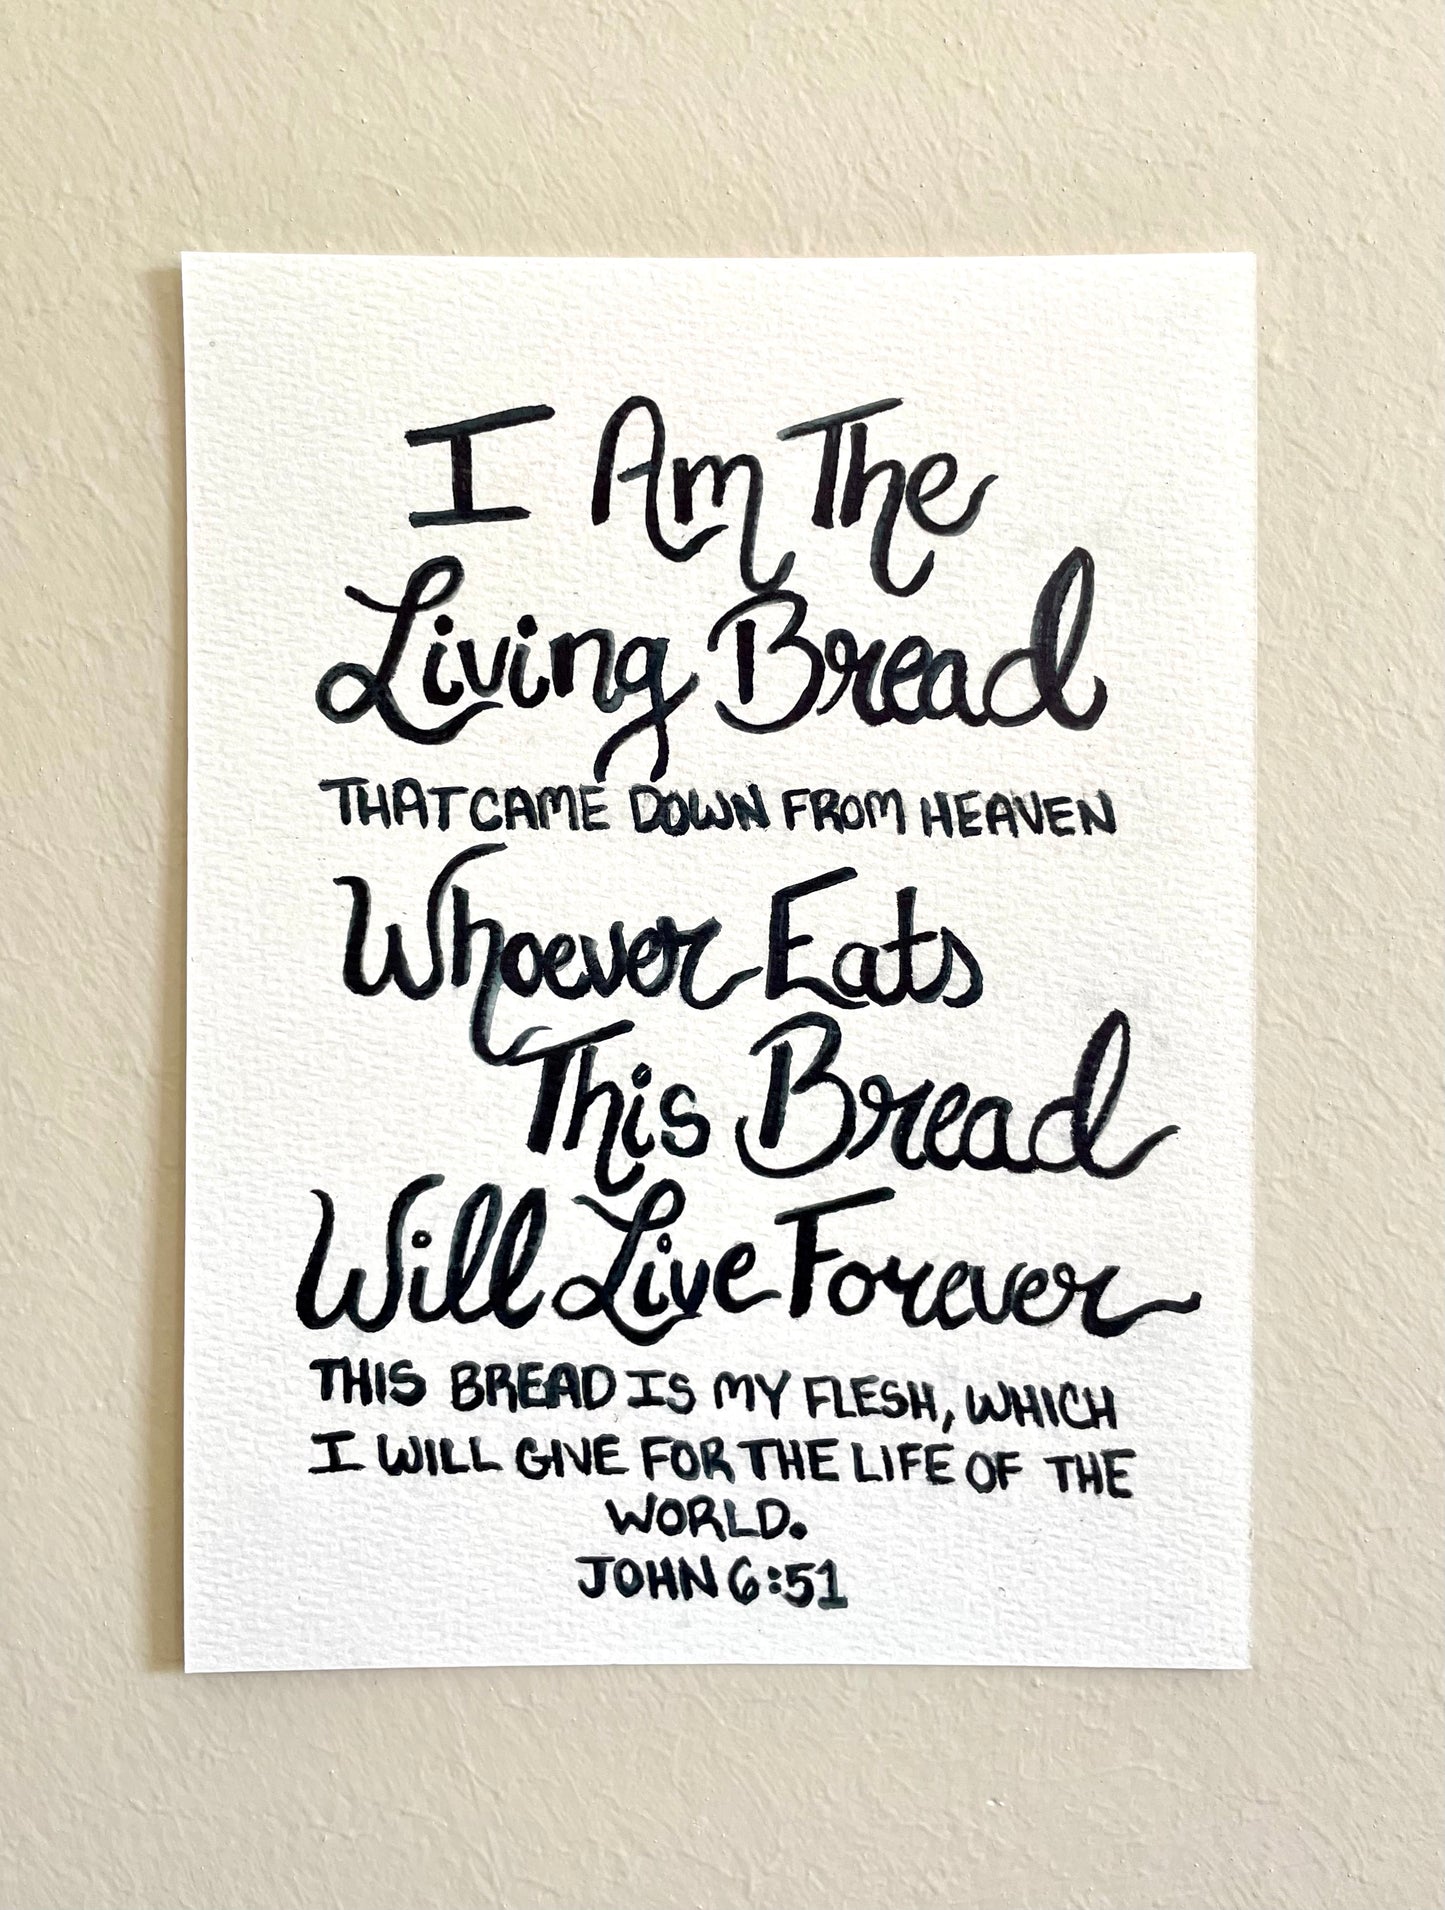 I Am The
Living Bread
THAT CAME DOWN FROM HEAVEN
Whoever Eats
This Bread
Will Live Forever
THIS BREAD IS MY FLESH, WHICH
I WILL GIVE FOR THE LIFE OF THE
WORLD.
JOHN 6:51